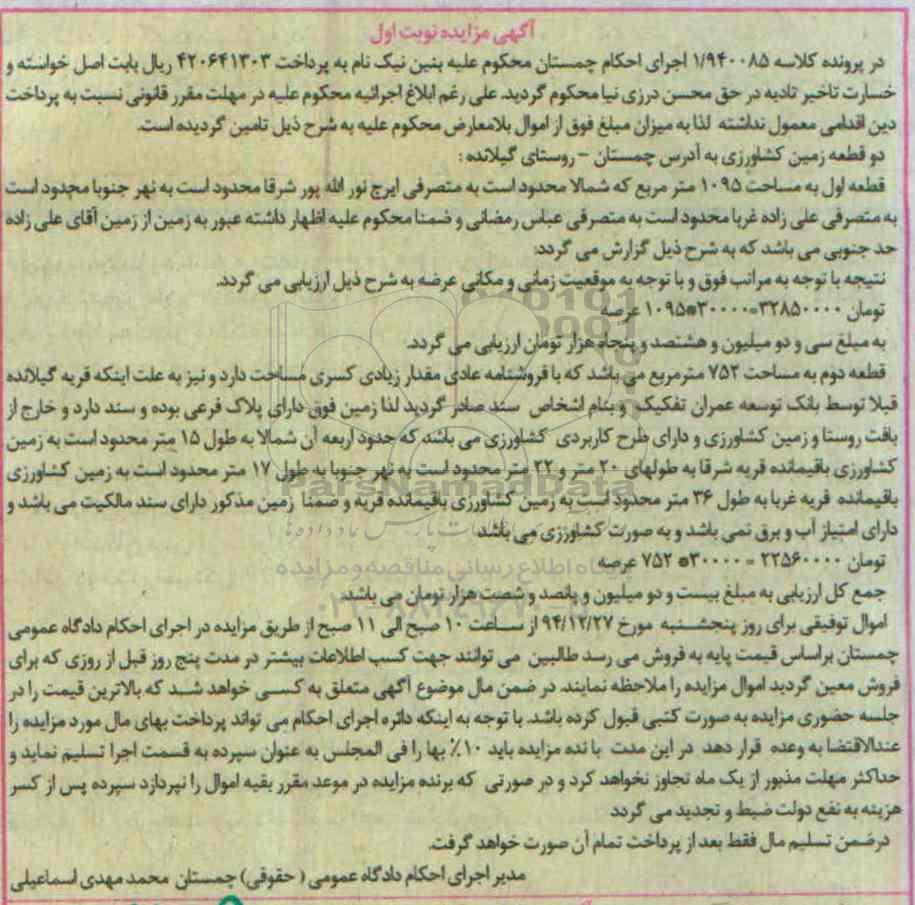 آگهی مزایده نوبت اول
در پرونده کلاسه ۱/۹۴۰۰۸۵ اجرای احکام چمستان محکوم علیه بنین نیک نام به پرداخت ۴۲۰۶۴۱۳۰۳ ریال بابت اصل خواسته و
خسارت تاخیر تادیه در حق محسن درزی نیا محکوم گردید. علی رغم ابلاغ اجرائیه محکوم علیه در مهلت مقرر قانونی نسبت به پرداخت
دین اقدامی معمول نداشته لذا به میزان مبلغ فوق از اموال بلامعارض محکوم علیه به شرح ذیل تامین گردیده است.
دو قطعه زمین کشاورزی به آدرس چمستان – روستای گیلانده :
قطعه اول به مساحت ۱۰۹۵ متر مربع که شمالا محدود است به متصرفی ایرج نور الله پور شرقا محدود است به نهر جنوبا محدود است
به متصرفی علی زاده غربا محدود است به متصرفی عباس رمضانی و ضمنا محکوم علیه اظهار داشته عبور به زمین از زمین آقای علی زاده
حد جنوبی می باشد که به شرح ذیل گزارش می گردد:
نتیجه با توجه به مراتب فوق و با توجه به موقعیت زمانی و مکانی عرصه به شرح ذیل ارزیابی می گردد.
تومان ۳۲۸۵۰۰۰۰=۳۰۰۰۰*۱۰۹۵ عرصه
به مبلغ سی و دو میلیون و هشتصد و پنجاه هزار تومان ارزیابی می گردد.
قطعه دوم به مساحت ۷۵۲ مترمربع می باشد که با فروشنامه عادی مقدار زیادی کسری مساحت دارد و نیز به علت اینکه قریه گیلانده
قبلا توسط بانک توسعه عمران تفکیک و بنام اشخاص سند صادر گردید لذا زمین فوق دارای پلاک فرعی بوده و سند دارد و خارج از
بافت روستا و زمین کشاورزی و دارای طرح کاربردی کشاورزی می باشد که حدود اربعه آن شمالا به طول ۱۵ متر محدود است به زمین
کشاورزی باقیمانده قریه شرقا به طولهای ۲۰ متر و ۲۲ متر محدود است به نهر جنوبا به طول ۱۷ متر محدود است به زمین کشاورزی
باقیمانده قریه غربا به طول ۳۶ متر محدود است به زمین کشاورزی باقیمانده قریه و ضمنا زمین مذکور دارای سند مالکیت می باشد و
دارای امتیاز آب و برق نمی باشد و به صورت کشاورزی می باشد
تومان ۲۲۵۶۰۰۰۰ = ۳۰۰۰۰* ۷۵۲ عرصه
جمع کل ارزیابی به مبلغ بیست و دو میلیون و پانصد و شصت هزار تومان می باشد.
اموال توقیفی برای روز پنجشنبه مورخ ۹۴/۱۲/۲۷ از ساعت ۱۰ صبح الی ۱۱ صبح از طریق مزایده در اجرای احکام دادگاه عمومی
چمستان براساس قیمت پایه به فروش می رسد طالبین می توانند جهت کسب اطلاعات بیشتر در مدت پنج روز قبل از روزی که برای
فروش معین گردید اموال مزایده را ملاحظه نمایند. در ضمن مال موضوع آگهی متعلق به کسی خواهد شد که بالاترین قیمت را در
جلسه حضوری مزایده به صورت کتبی قبول کرده باشد. با توجه به اینکه دائره اجرای احکام می تواند پرداخت بهای مال مورد مزایده را
عندالاقتضا به وعده قرار دهد در این مدت با نده مزایده باید ۱۰٪ بها را فی المجلس به عنوان سپرده به قسمت اجرا تسلیم نماید و
حداکثر مهلت مذبور از یک ماه تجاوز نخواهد کرد و در صورتی که برنده مزایده در موعد مقرر بقیه اموال را نپردازد سپرده پس از کسر
هزینه به نفع دولت ضبط و تجدید می گردد
درضمن تسلیم مال فقط بعد از پرداخت تمام آن صورت خواهد گرفت.
مدیر اجرای احکام دادگاه عمومی ( حقوقی) چمستان محمد مهدی اسماعیلی
ParsNamadData